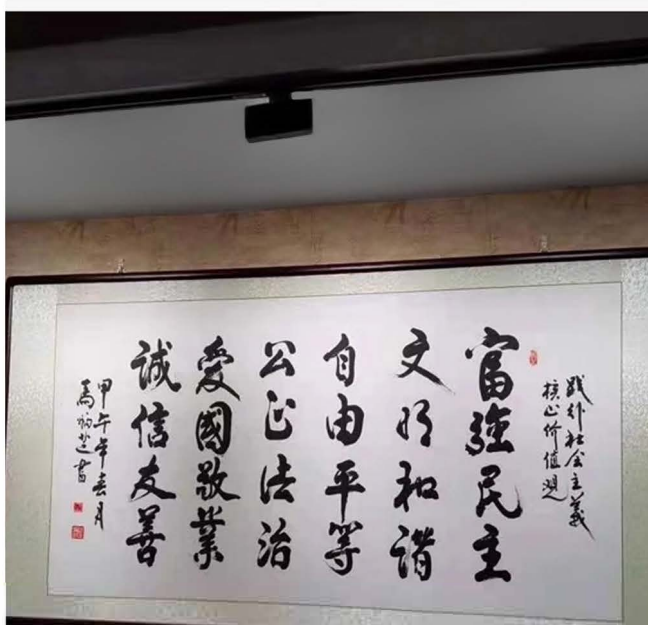 践行社会主義
核心价值观
富強民主
文明和谐
自由平等
公正法治
愛國敬業
誠信友善
甲午年春月